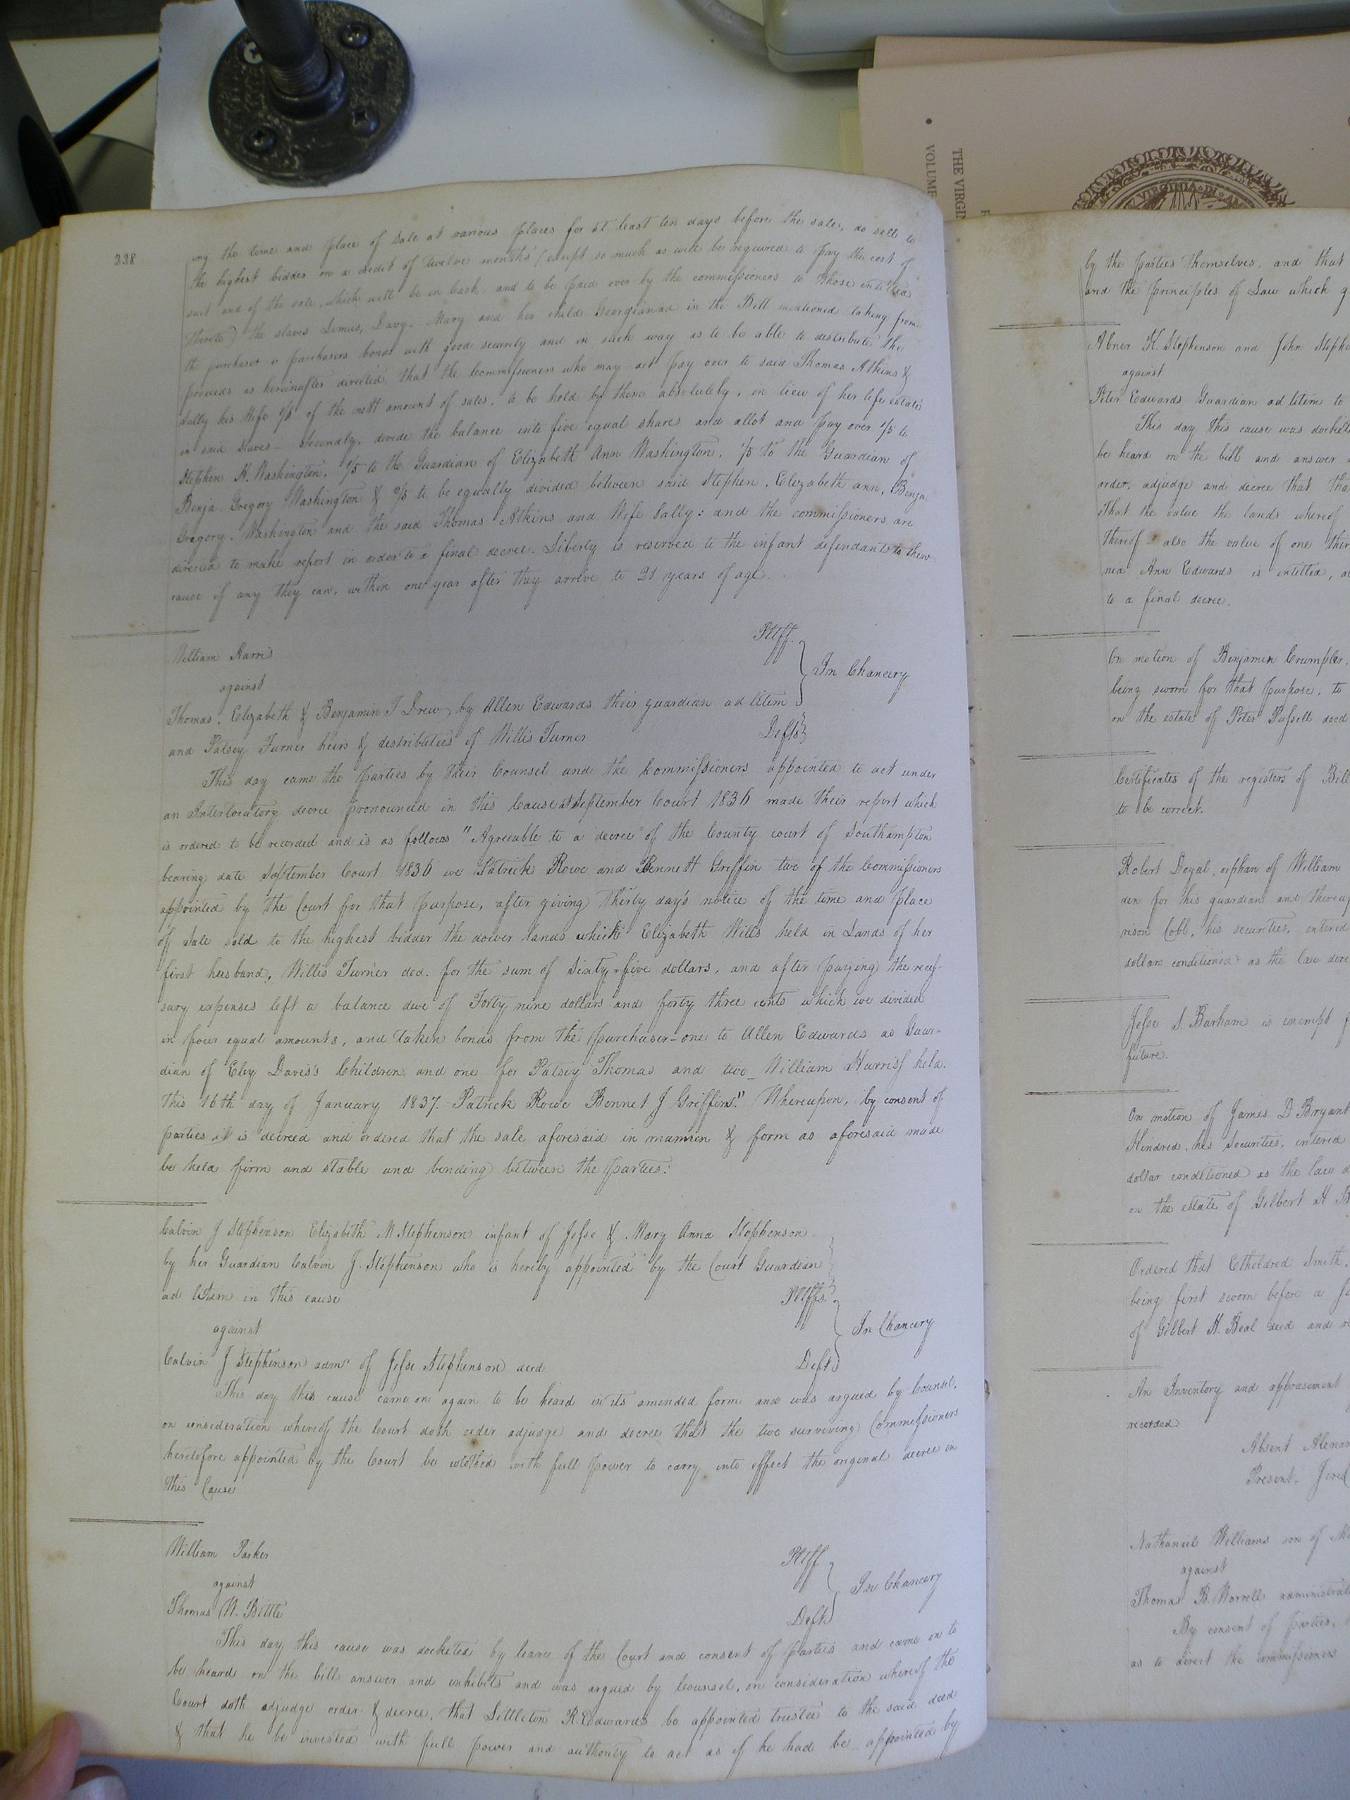 238
ing the time and place of sale at various places for at least ten days before the sale, do sell to
the highest bidder on a credit of twelve months (except so much as will be required to pay the cost of
suit and of the sale, which will be in cash and to be paid over by the commissioners to those entitled
thereto) the slaves Davy, Mary and her child Georgianna in the Bill mentioned taking from
the purchaser or purchasers bonds with good security and in such way as to be able to distribute the
proceeds as hereinafter directed, that the Commissioners who may act pay over to said Thomas Atkins &
Sally his Wife of the nett amount of sales, to be held by them absolutely, in lieu of her life estate
in said slaves - Secondly, divide the balance into five equal shares and allot and pay over 1/5 to
Stephen K. Washington, 1/5 to the Guardian of Elizabeth Ann Washington, 1/5 to the Guardian of
Benja Gregory Washington & 2/5 to be equally divided between said Stephen, Elizabeth ann, Benja
Gregory Washington and the said Thomas Atkins and Wife Sally: and the commissioners are
directed to make report in order to a final decree. Liberty is reserved to the infant defendants to shew
cause if any they can, within one year after they arrive to 21 years of age.
William Harris Pltff
against In Chancery
Thomas, Elizabeth & Benjamin T Drew by Allen Edwards their guardian ad litem
and Patsey Turner heirs & distributees of Willis Turner Defts
This day came the parties by their Counsel and the Commissioners appointed to act under
an Interlocutory decree pronounced in this Cause at September Court 1836 made their report which
is ordered to be recorded and is as follows "Agreeable to a decree of the County court of Southampton
bearing date September Court 1836 we Patrick Rowe and Bennett Griffin two of the Commissioners
appointed by the Court for that purpose, after giving Thirty day's notice of the time and place
of sale sold to the highest bidder the dower lands which Elizabeth Wills held in Lands of her
first husband, Willis Turner decd. for the sum of Sixty-five dollars, and after paying the neces-
sary expenses left a balance due of Forty nine dollars and forty three cents which we divided
in four equal amounts, and taken bonds from the purchaser - one to Allen Edwards as Guar-
dian of Eley Davis's Children and one for Patsey Thomas and two William Harriss held.
This 16th day of January 1837. Patrick Rowe Bennet J Griffin." Whereupon, by consent of
parties it is decreed and ordered that the sale aforesaid in manner & form as aforesaid made
be held firm and stable and binding between the parties:
Calvin J Stephenson Elizabeth M Stephenson infant of Jesse & Mary Anna Stephenson
by her Guardian Calvin J. Stephenson who is hereby appointed by the Court Guardian
ad litem in this cause Pltffs
against In Chancery
Calvin J Stephenson admr of Jesse Stephenson decd Deft
This day this cause came on again to be heard in its amended form and was argued by Counsel,
on consideration whereof the Court doth order adjudge and decree that the two surviving Commissioners
heretofore appointed by the Court be clothed with full power to carry into effect the original decree in
this Cause
William Parker Pltff
against In Chancery
Thomas W. Bittle Deft
This day this cause was docketed by leave of the Court and consent of parties and came on to
be heard on the bill answer and exhibits and was argued by Counsel, on consideration whereof the
Court doth adjudge order & decree, that Littleton R. Edwards be appointed trustee to the said deed
& that he be invested with full power and authority to act as if he had been appointed by
THE VIRGIN
VOLUME
by the parties themselves, and that
and the principles of Law which
Abner H. Stephenson and John Stephe
against
Peter Edwards Guardian ad litem to
This day this cause was docket
be heard on the bill and answer
order, adjudge and decree that
That the value the lands whereof
thereof also the value of one
Ann Edwards is entitled,
to a final decree.
On motion of Benjamin Crumpler,
being sworn for that purpose, to
on the estate of Peter decd
Certificates of the registers of
to be correct.
Robert Doyal, orphan of William
den for his guardian and thereup
Cobb, his securities, entered
dollars conditioned as the law dire
Jesse S Barham is exempt f
future.
On motion of James D Bryant
Kindred, his Securities, entered
dollar conditioned as the law d
on the estate of Gilbert H B
Ordered that Etheldred Smith,
being first sworn before a J
of Gilbert H. Beal decd and
An Inventory and appraisement
recorded
Absent
Present
Nathaniel Williams son of
against
Thomas B. Worrell administrat
By consent of Parties,
as to direct the commissioners